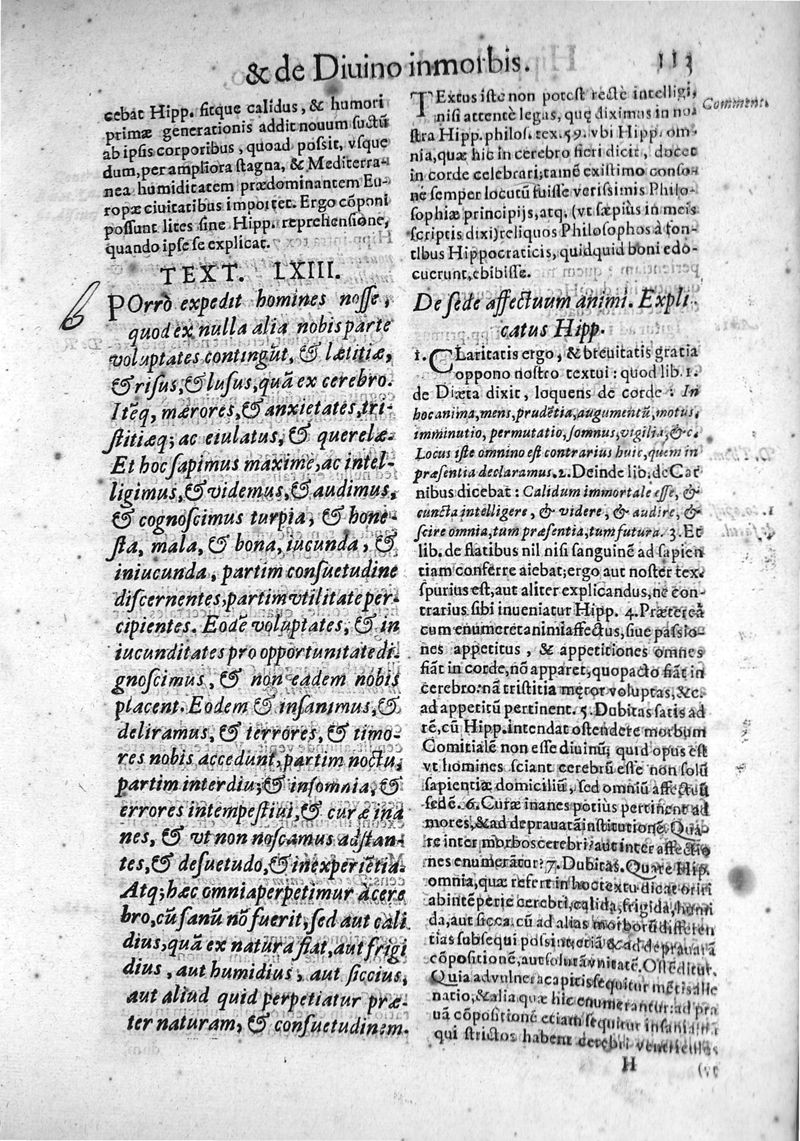 & de Diuino in morbis.
113
cebat Hipp. sitque calidus, & humori
primæ generationis addit nouum suctũ
ab ipsis corporibus, quoad possit, vsque
dum, per ampliora stagna, & Mediterra-
nea humiditatem prædominantem Eu-
ropæ ciuitatibus importet. Ergo cõponi
possunt lites sine Hipp. reprehensione,
quando ipse se explicat.
TEXT. LXIII.
POrrò expedit homines nosse,
quod ex nulla alia nobis parte
voluptates contingũt, & lætitiæ,
& risus, & lusus, quã ex cerebro.
Itẽq, mærores, & anxietates, tri-
stitiæq; ac eiulatus, & querelæ.
Et hoc sapimus maxime, ac intel-
ligimus, & videmus, & audimus,
& cognoscimus turpia, & hone-
sta, mala, & bona, iucunda, &
iniucunda, partim consuetudine
discernentes, partim vtilitate per-
cipientes. Eodẽ voluptates, & in
iucunditates pro opportunitate di-
gnoscimus, & non eadem nobis
placent. Eodem & insanimus, &
deliramus, & terrores, & timo-
res nobis accedunt, partim noctu,
partim interdiu; & insomnia, &
errores intempestiui, & curæ ina
nes, & vt non noscamus adstan-
tes, & desuetudo, & inexperiẽtia.
Atq; hæc omnia perpetimur à cere
bro, cũ sanũ nõ fuerit, sed aut cali
dius, quã ex natura fiat, aut frigi
dius, aut humidius, aut siccius,
aut aliud quid perpetiatur præ-
ter naturam, & consuetudinem.
TExtus iste non potest rectè intelligi,
Comment.
nisi attentè legas, quę diximus in no-
stra Hipp. philos. tex. 59. vbi Hipp. om-
nia, quæ hic in cerebro fieri dicit, docet
in corde celebrari; tamẽ existimo conso-
nè semper locutũ fuisse verissimis Philo-
sophiæ principijs, atq. (vt sæpius in meis
scriptis dixi) reliquos Philosophos à fon-
tibus Hippocraticis, quidquid boni edo-
cuerunt, ebibisse.
De sede affectuum animi. Expli-
catus Hipp.
1. CLaritatis ergo, & breuitatis gratia
oppono nostro textui: quod lib. 1.
de Diæta dixit, loquens de corde: In
hoc anima, mens, prudẽtia, augumentũ, motus,
imminutio, permutatio, somnus, vigilia, & c.
Locus iste omnino est contrarius huic, quem in
præsentia declaramus. 2. Deinde lib. de Car
nibus dicebat: Calidum immortale esse, &
cuncta intelligere, & videre, & audire, &
scire omnia, tum præsentia, tum futura. 3. Et
lib. de flatibus nil nisi sanguinẽ ad sapien
tiam conferre aiebat; ergo aut noster tex.
spurius est, aut aliter explicandus, ne con-
trarius sibi inueniatur Hipp. 4. Prætereà
cum enumeret animi affectus, siue passio-
nes appetitus, & appetitiones omnes
fiãt in corde, nõ apparet, quo pacto fiãt in
cerebro: nã tristitia męror voluptas, &c.
ad appetitũ pertinent. 5. Dubitas satis ad
rẽ, cũ Hipp. intendat ostendere morbum
Comitialẽ non esse diuinũ; quid opus est
vt homines sciant cerebrũ esse non solũ
sapientiæ domiciliũ, sed omniũ affectuũ
sedẽ. 6. Curæ inanes potius pertinent ad
mores, & ad deprauatã institutionẽ. Qua
re inter morbos cerebri? aut inter affectio
nes enumerãtur? 7. Dubitas. Quare Hip.
omnia, quæ refert in hoc textu dicat oriri
ab intẽperie cerebri, calida, frigida, humi
da, aut sicca, cũ ad alias morborũ differen
tias subsequi possint; etiã & ad deprauatã
cõpositionẽ, aut solutã vnitatẽ. Ostẽditur.
Quia ad vulnera capitis sequitur mẽtis alie
natio, & alia quæ hic enumerantur: ad pra
uã cõpositionẽ etiam sequitur insania: nã
qui strictos habent cerebri ventriculos
H
(vt